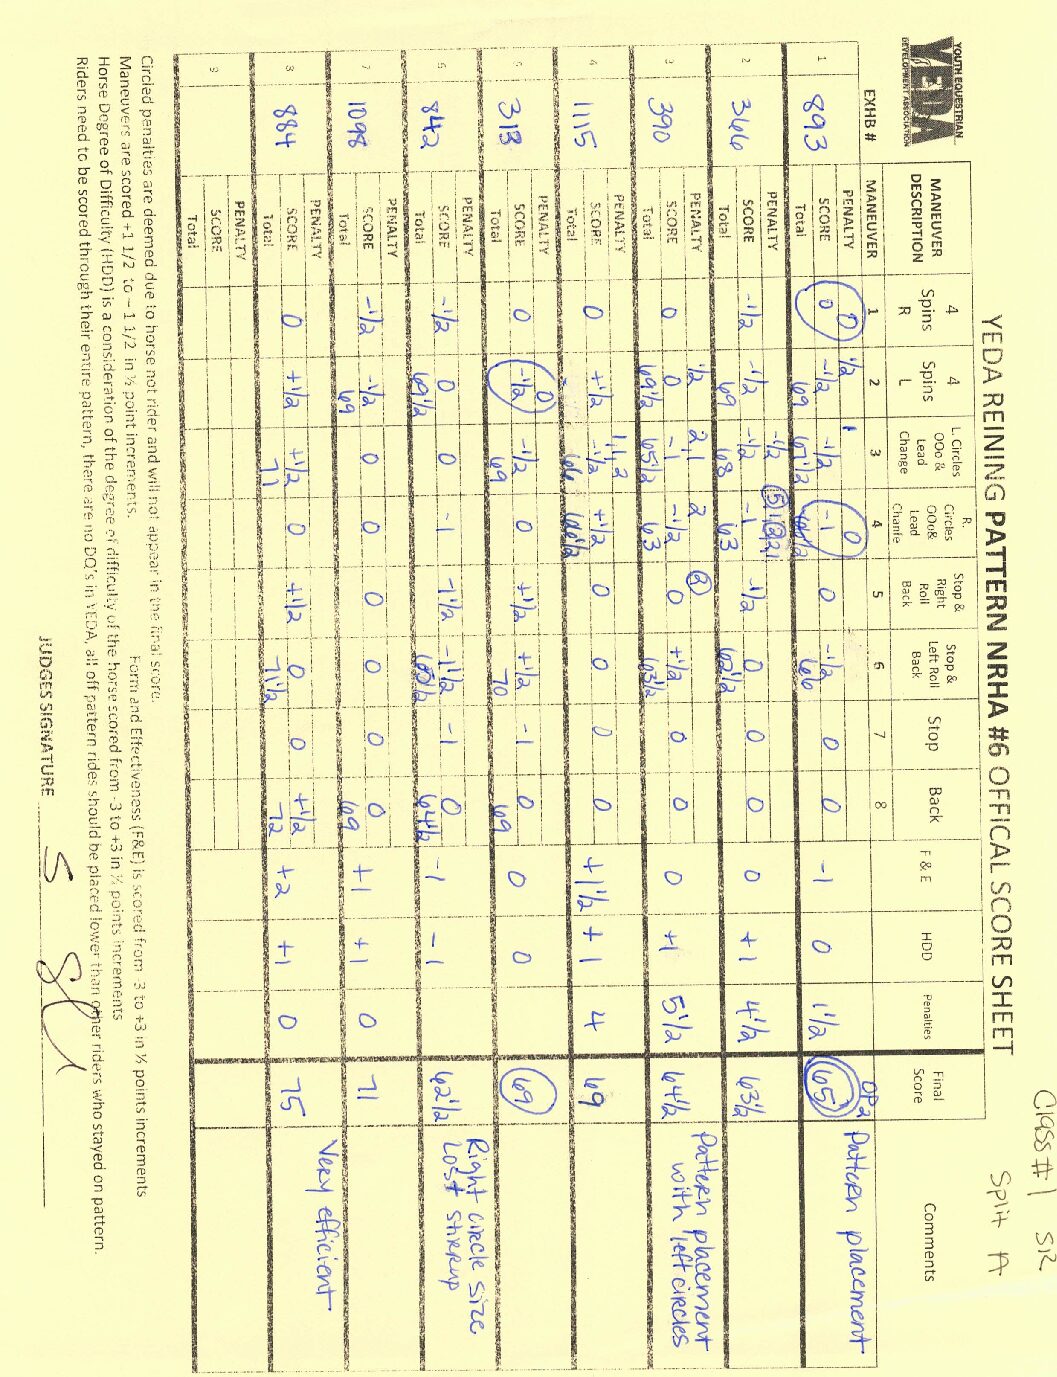 Class #1 S12
Split A
YOUTH EQUESTRIAN
YEDA
DEVELOPMENT ASSOCIATION
YEDA REINING PATTERN NRHA #6 OFFICAL SCORE SHEET
MANEUVER DESCRIPTION 4 Spins R 4 Spins L L. Circles OOo & Lead Change R. Circles OOo& Lead Chanfe Stop & Right Roll Back Stop & Left Roll Back Stop Back F & E HDD Penalties Final Score Comments
EXHB # MANEUVER 1 2 3 4 5 6 7 8
1 893 PENALTY 0 1/2 1 0 OP2 Pattern placement
SCORE 0 -1/2 -1/2 -1 0 -1/2 0 0 -1 0 1 1/2 65
Total 69 67 1/2 66
2 366 PENALTY -1/2
SCORE -1/2 -1/2 -1/2 -1 -1/2 0 0 0 0 +1 4 1/2 63 1/2
Total 69 68 63 62 1/2
3 390 PENALTY 1/2 2,1 2 2 Pattern placement with left circles
SCORE 0 0 -1 -1/2 0 +1/2 0 0 0 +1 5 1/2 64 1/2
Total 69 1/2 65 1/2 63 63 1/2
4 1115 PENALTY 1,1,2
SCORE 0 +1/2 -1/2 +1/2 0 0 0 0 +1 1/2 +1 4 69
Total 66 66 1/2
5 313 PENALTY 0
SCORE 0 -1/2 -1/2 0 +1/2 +1/2 -1 0 0 0 69
Total 69 70 69
6 842 PENALTY Right circle size
SCORE -1/2 0 0 -1 -1 1/2 -1 1/2 -1 0 -1 -1 62 1/2 Lost stirrup
Total 69 1/2 64 1/2
7 1098 PENALTY
SCORE -1/2 -1/2 0 0 0 0 0 0 +1 +1 0 71
Total 69 69
8 884 PENALTY Very efficient
SCORE 0 +1/2 +1/2 0 +1/2 0 0 +1/2 +2 +1 0 75
Total 71 71 1/2 72
9 PENALTY
SCORE
Total
Circled penalties are deemed due to horse not rider and will not appear in the final score. Form and Effectiveness (F&E) is scored from -3 to +3 in ½ points increments
Maneuvers are scored +1 1/2 to – 1 1/2 in ½ point increments.
Horse Degree of Difficulty (HDD) is a consideration of the degree of difficulty of the horse scored from -3 to +3 in ½ points increments
Riders need to be scored through their entire pattern, there are no DQ's in YEDA, all off pattern rides should be placed lower than other riders who stayed on pattern.
JUDGES SIGNATURE